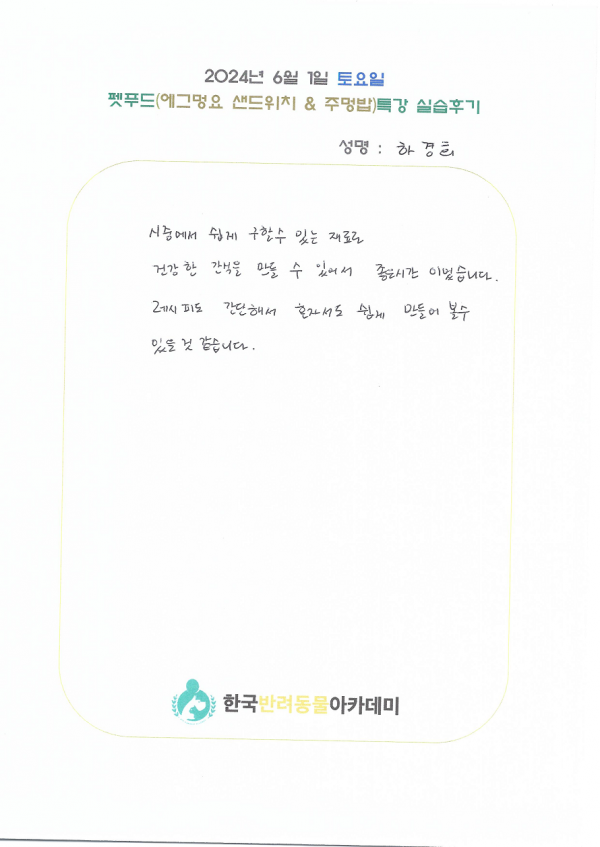 2024년 6월 1일 토요일
펫푸드(에그멍요 샌드위치 & 주멍밥)특강 실습후기
성명 : 하경희
시중에서 쉽게 구할수 있는 재료로
건강한 간식을 만들 수 있어서 좋은시간 이였습니다.
레시피도 간단해서 혼자서도 쉽게 만들어 볼수
있을것 같습니다.
한국반려동물아카데미